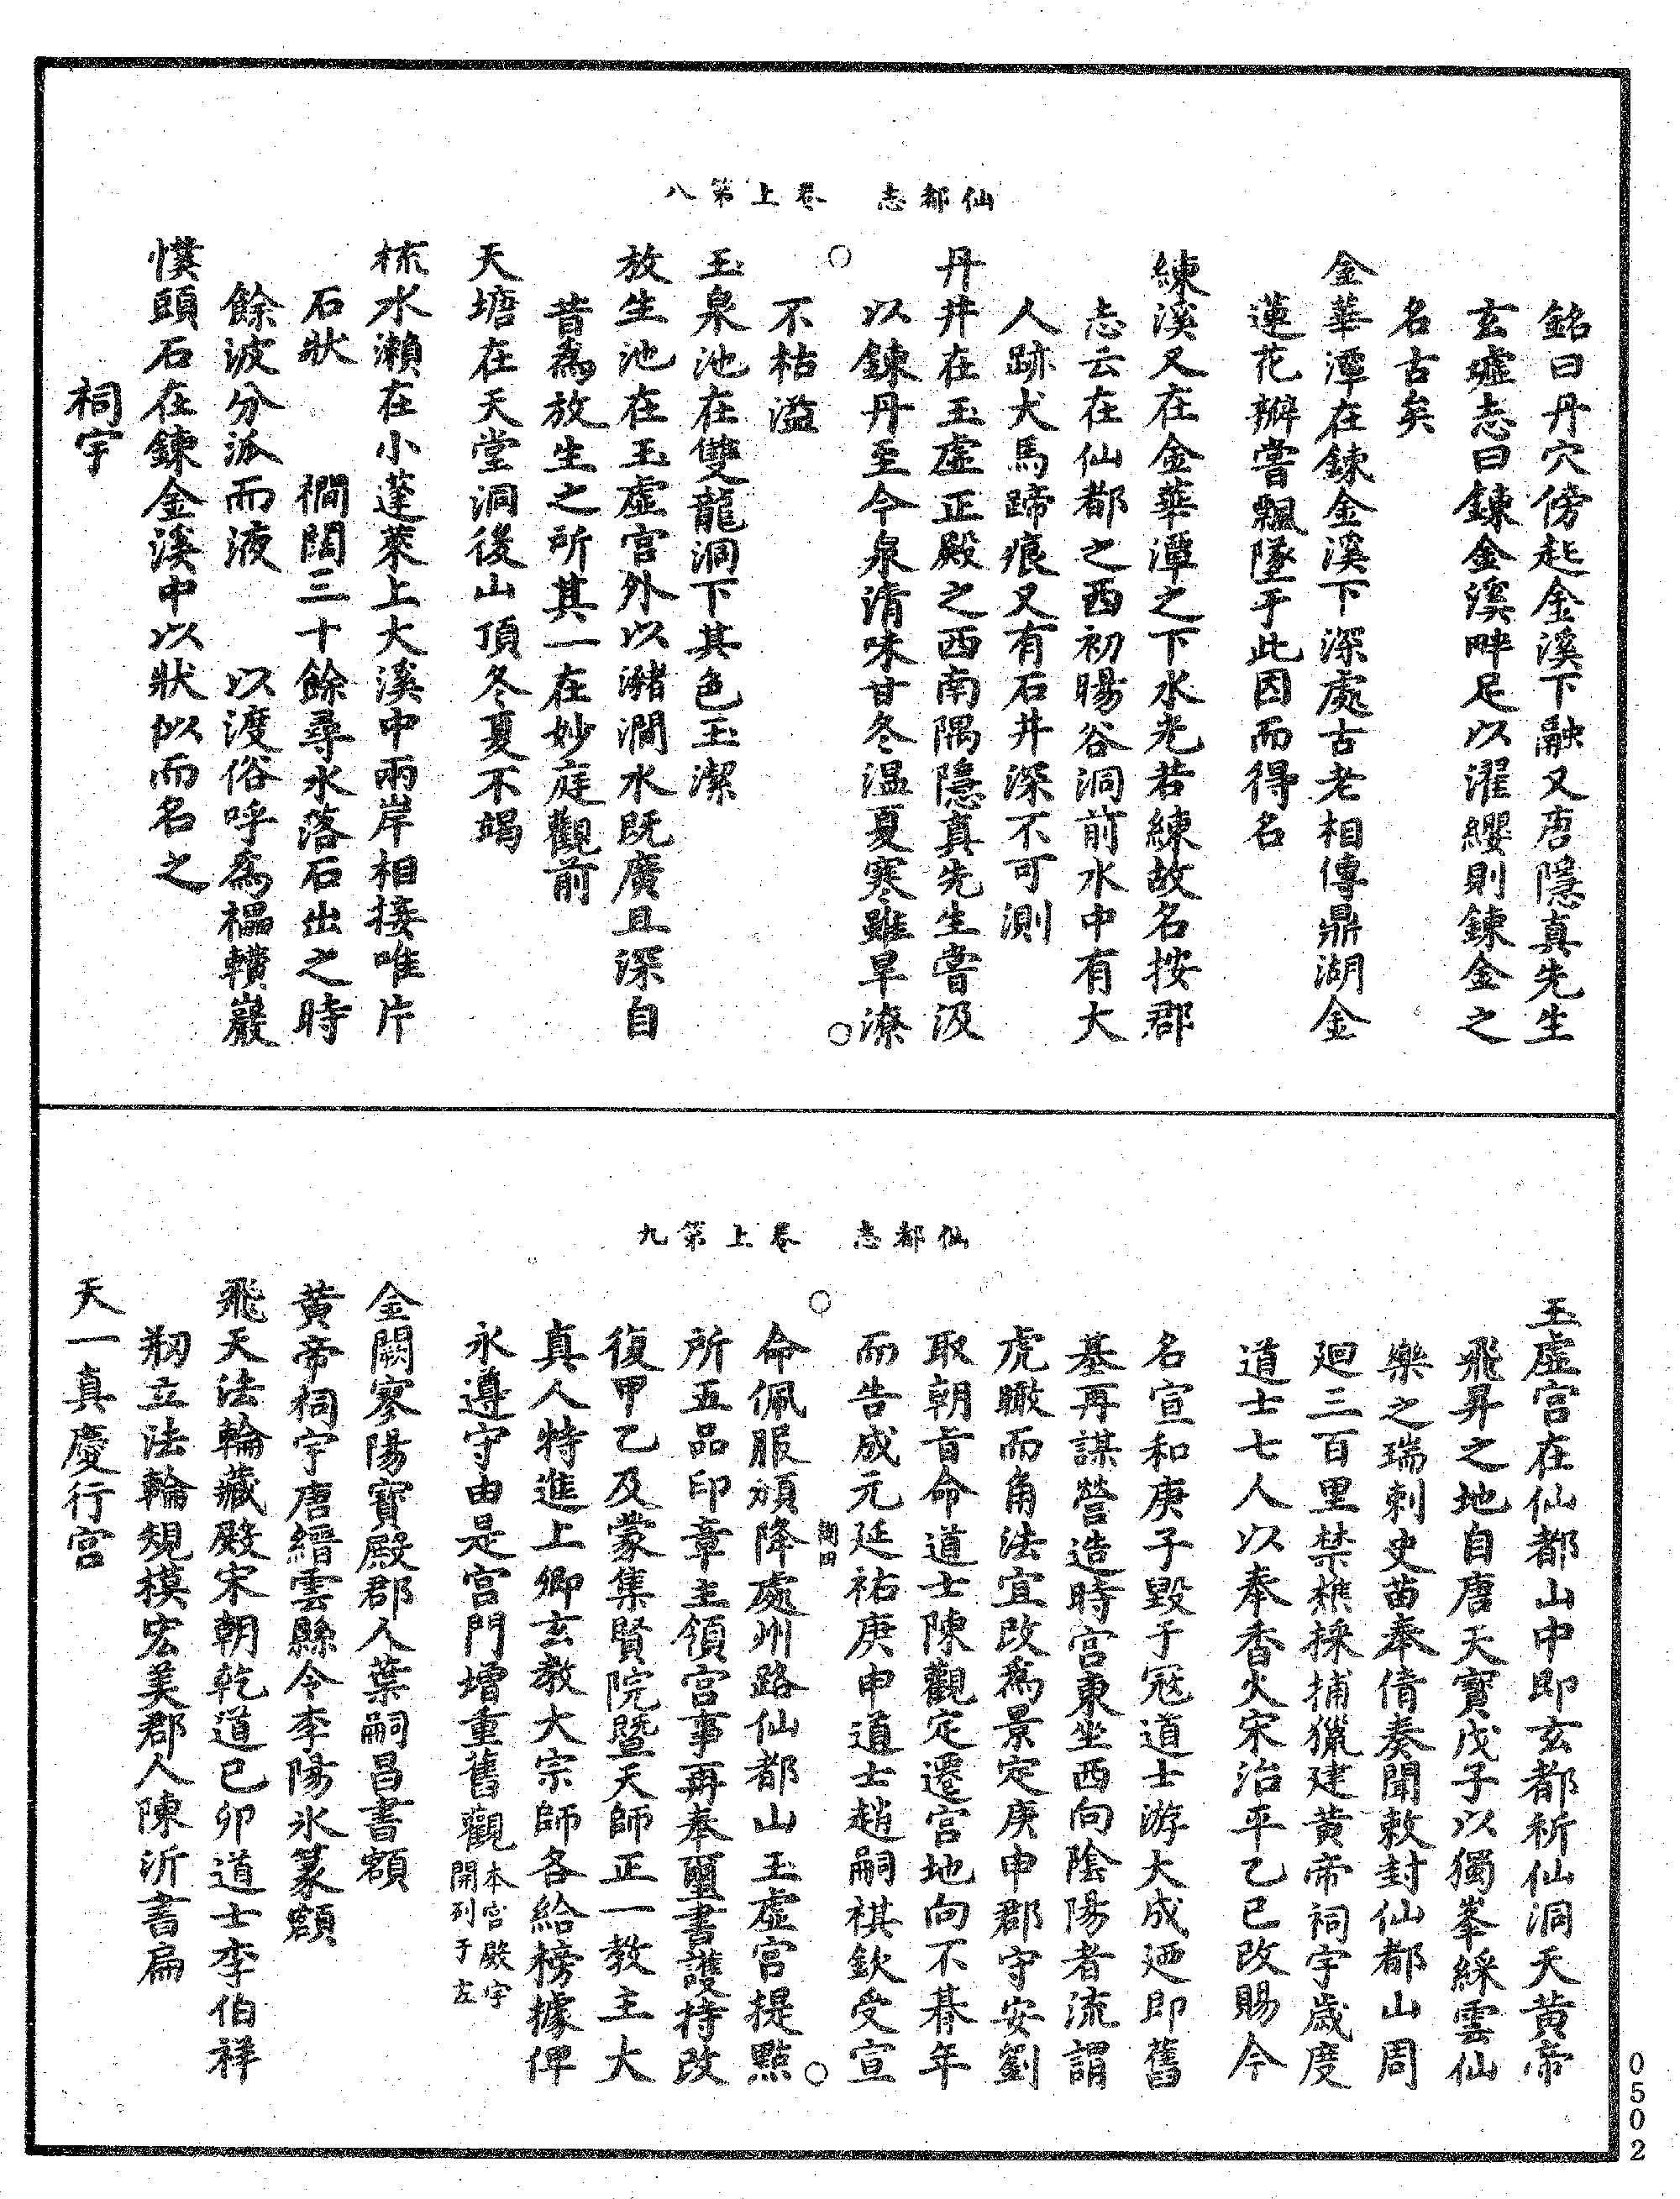 仙都志　卷上第八
銘曰丹穴傍起金溪下融又唐隱真先生
玄墟志曰鍊金溪畔足以濯纓則鍊金之
名古矣
金華潭在鍊金溪下深處古老相傳鼎湖金
蓮花瓣嘗飄墜于此因而得名
練溪又在金華潭之下水光若練故名按郡
志云在仙都之西初暘谷洞前水中有大
人跡犬馬蹄痕又有石井深不可測
丹井在玉虛正殿之西南隅隱真先生嘗汲
以鍊丹至今泉清味甘冬溫夏寒雖旱潦
不枯溢
玉泉池在雙龍洞下其色玉潔
放生池在玉虛宮外以瀦澗水既廣且深自
昔為放生之所其一在妙庭觀前
天塘在天堂洞後山頂冬夏不竭
梳水瀨在小蓬萊上大溪中兩岸相接唯片
石狀　　橺闊三十餘尋水落石出之時
餘波分派而液　　以渡俗呼為榅轒巖
幞頭石在鍊金溪中以狀似而名之
祠宇
仙都志　卷上第九
玉虛宮在仙都山中即玄都祈仙洞天黃帝
飛昇之地自唐天寶戊子以獨峯綵雲仙
樂之瑞刺史苗奉倩奏聞敕封仙都山周
廻三百里禁樵採捕獵建黃帝祠宇歲度
道士七人以奉香火宋治平乙巳改賜今
名宣和庚子毀于冠道士游大成廼即舊
基再謀營造時宮東坐西向陰陽者流謂
虎瞰而角法宜改為景定庚申郡守安劉
取朝旨命道士陳觀定遷宮地向不朞年
而告成元延祐庚申道士趙嗣祺欽受宣
命佩服頒降處州路仙都山玉虛宮提點
所五品印章主領宮事再奉璽書護持改
復甲乙及蒙集賢院暨天師正一教主大
真人特進上卿玄教大宗師各給榜據俾
永遵守由是宮門增重舊觀本宮殿宇開列于左
金闕寥陽寶殿郡人葉嗣昌書額
黃帝祠宇唐縉雲縣令李陽氷篆額
飛天法輪藏殿宋朝乾道己卯道士李伯祥
剏立法輪規模宏美郡人陳沂書扁
天一真慶行宮
0502